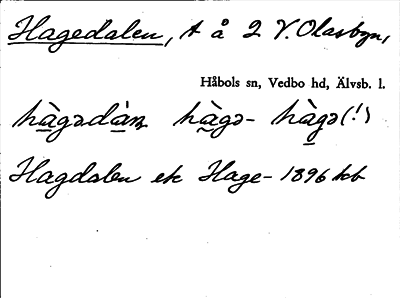 Hagedalen, t å 2 V. Olasbyn,
Håbols sn, Vedbo hd, Älvsb. l.
hàgədàn hàgə- hàgə(!)
Hagdalen ek Hage- 1896 kb